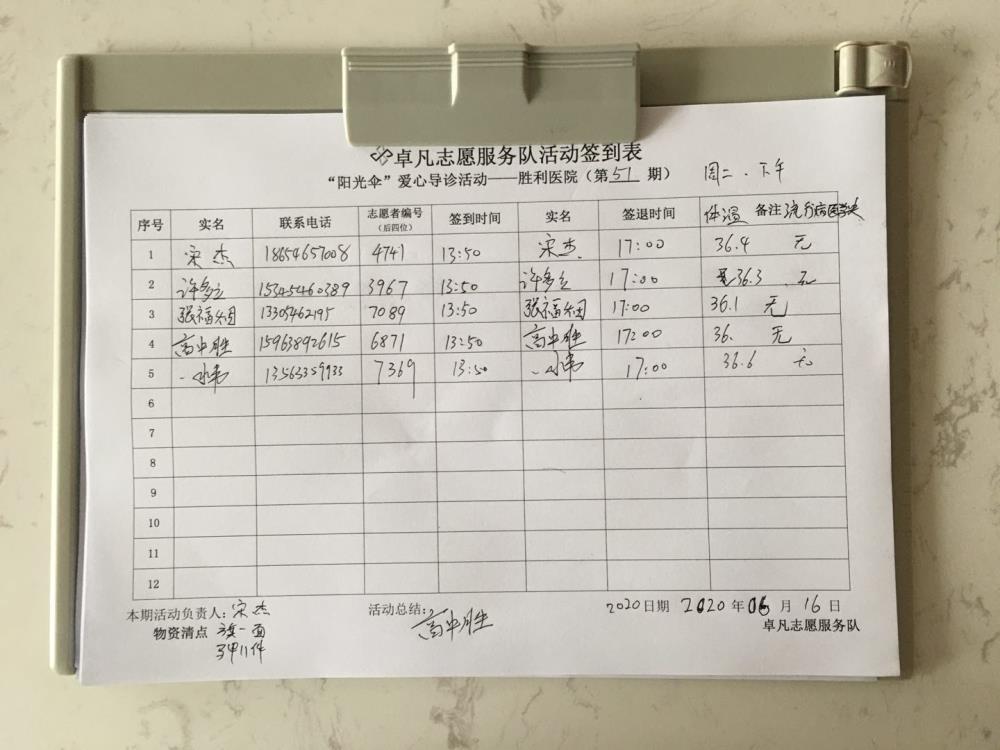 卓凡志愿服务队活动签到表
“阳光伞”爱心导诊活动——胜利医院（第 51 期） 周二．下午
序号 实名 联系电话 志愿者编号（后四位） 签到时间 实名 签退时间 体温 备注 流行病
1 宋杰 18654657008 4741 13:50 宋杰 17:00 36.4 无
2 许多立 15345460389 3967 13:50 许多立 17:00 36.3 无
3 13305462195 7089 13:50 17:00 36.1 无
4 高中胜 15963892615 6871 13:50 高中胜 17:00 36. 无
5 13563359933 7369 13:50 17:00 36.6 无
6
7
8
9
10
11
12
本期活动负责人：宋杰 活动总结：高中胜 2020日期 2020 年 06 月 16 日
物资清点 旗一面 卓凡志愿服务队
马甲11件